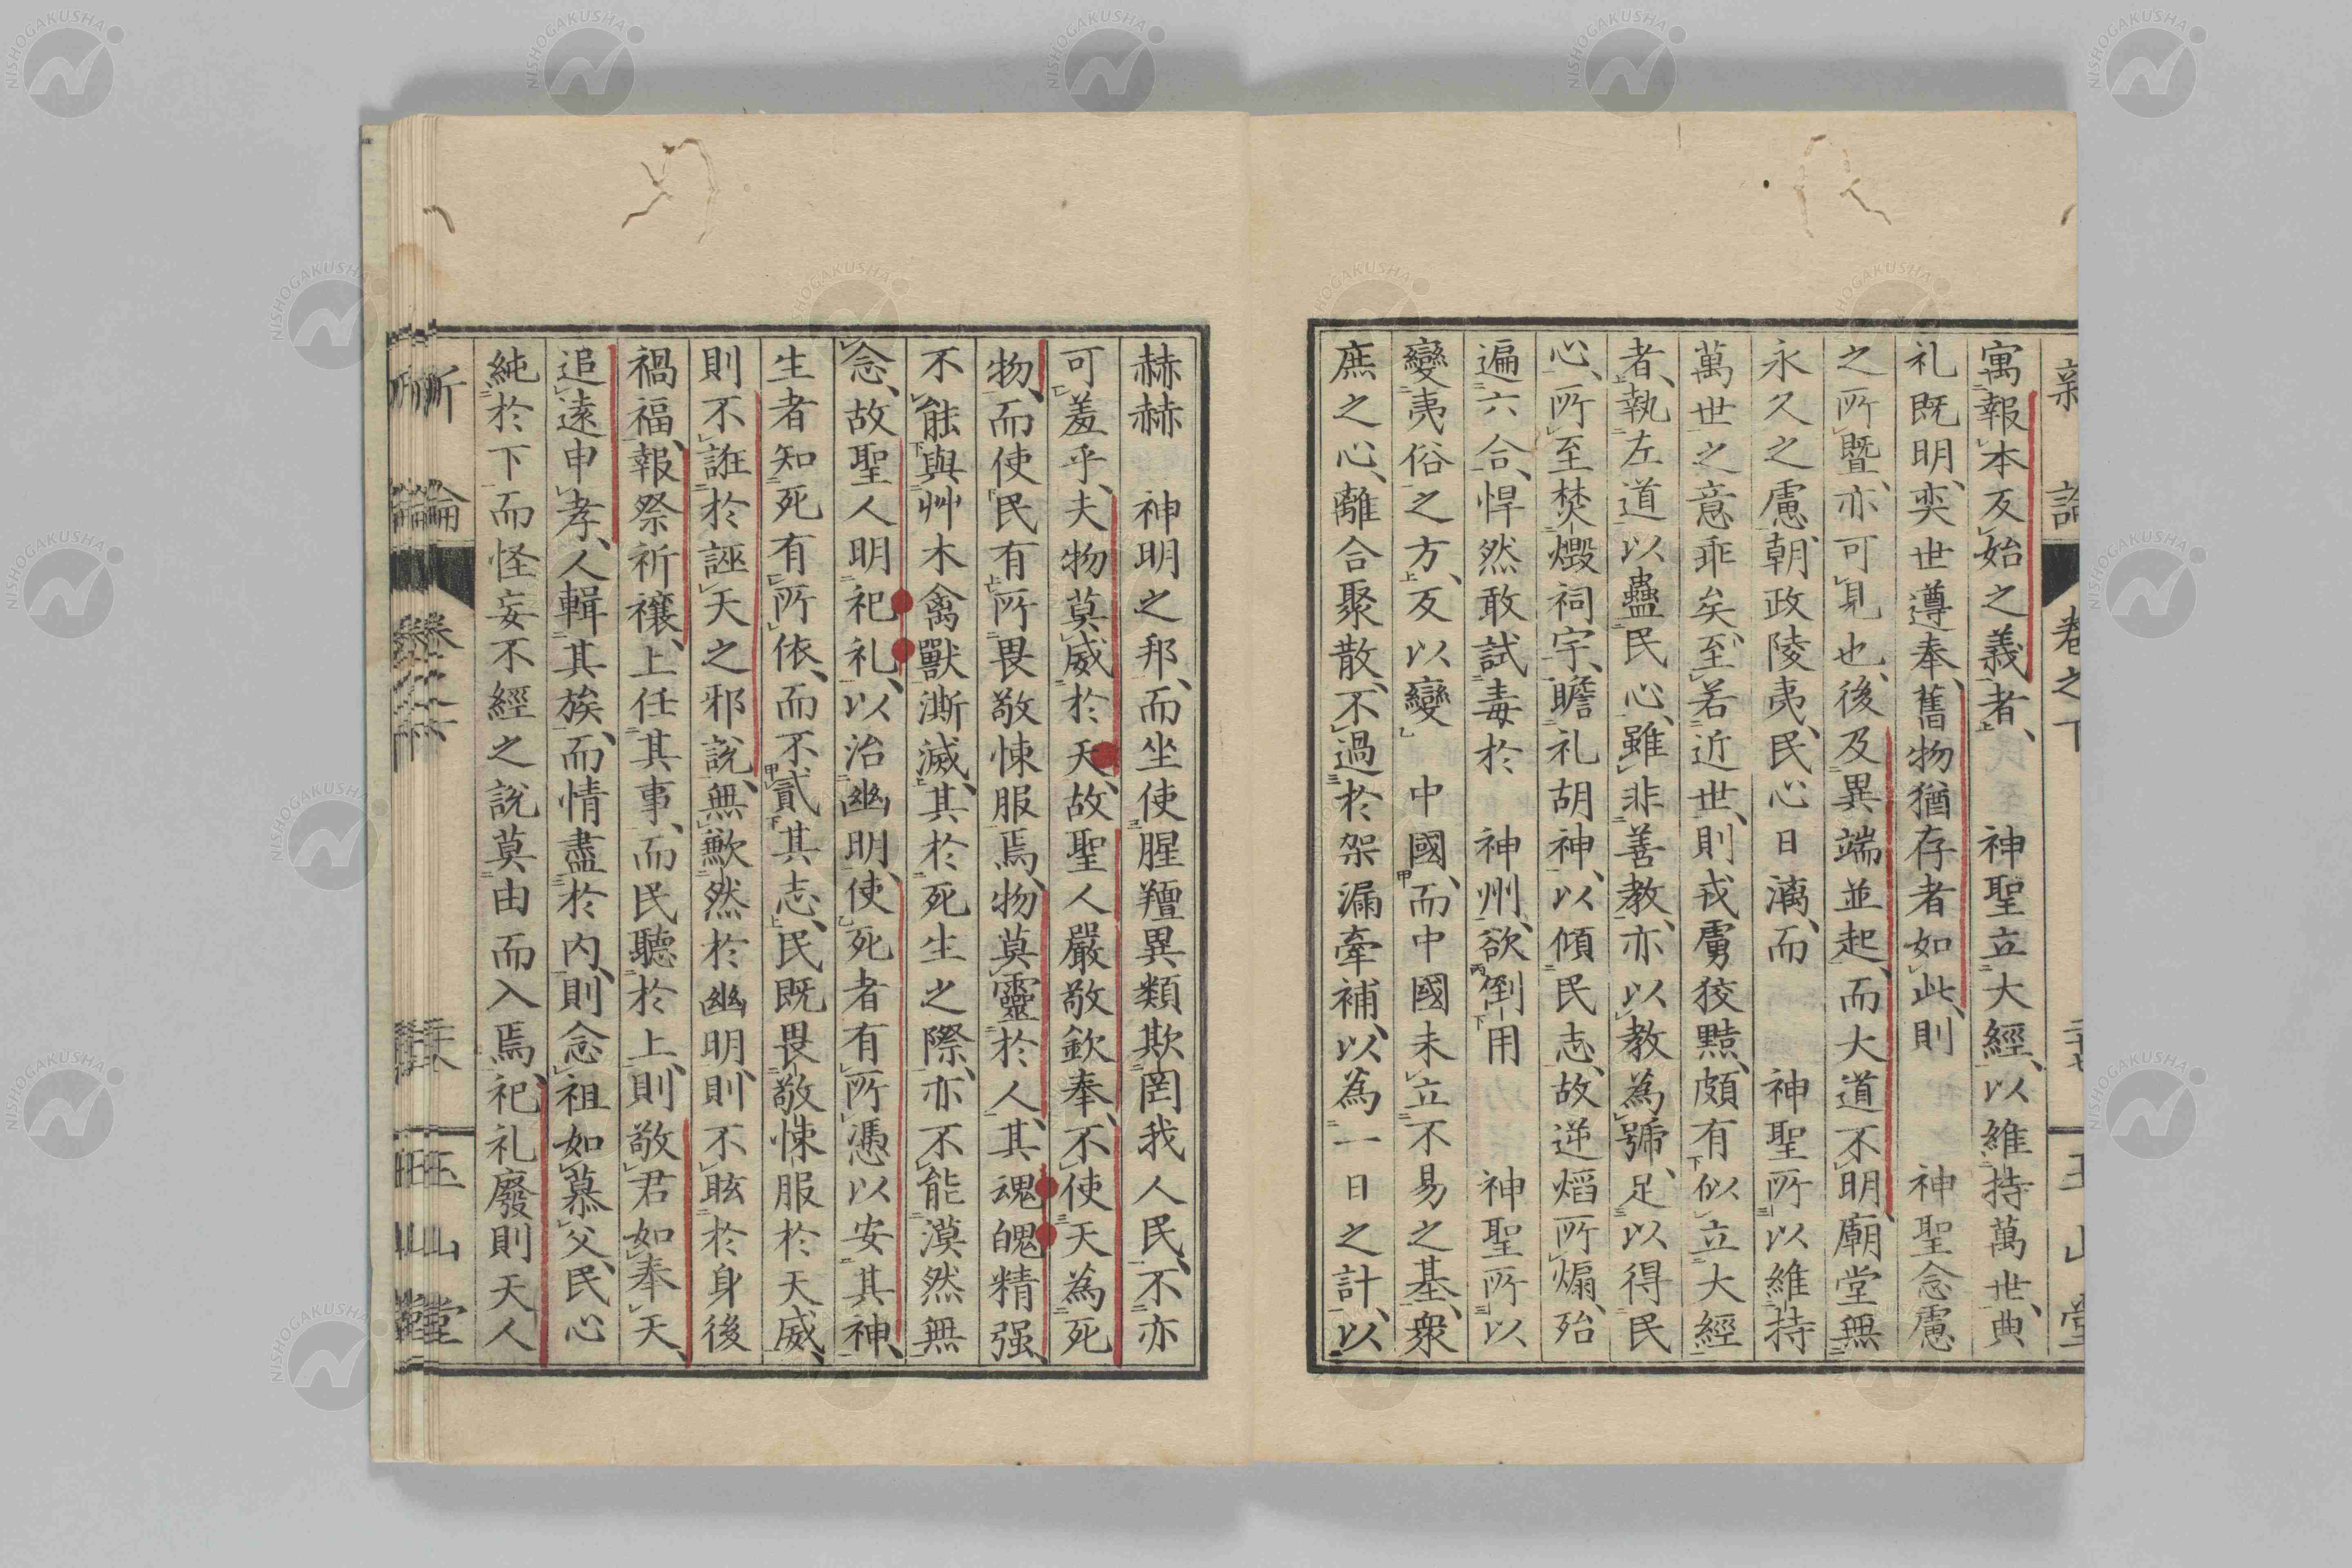 新論 卷之下 二十七 玉山堂
寓報本反始之義者、 神聖立大經、以維持萬世、典
礼既明、奕世遵奉、舊物猶存者如此、則 神聖念慮
之所曁、亦可見也、後及異端並起、而大道不明、廟堂無
永久之慮、朝政陵夷、民心日漓、而 神聖所以維持
萬世之意乖矣、至若近世、則戎虜狡黠、頗有似立大經
者、執左道以蠱民心、雖非善教、亦以教為號、足以得民
心、所至焚燬祠宇、瞻礼胡神、以傾民志、故逆熖所煽、殆
遍六合、悍然敢試毒於 神州、欲倒用 神聖所以
變夷俗之方、反以變 中國、而中國未立不易之基、衆
庶之心、離合聚散、不過於架漏牽補、以為一日之計、以
赫赫 神明之邦、而坐使腥羶異類欺罔我人民、不亦
可羞乎、夫物莫威於天、故聖人嚴敬欽奉、不使天為死
物、而使民有所畏敬悚服焉、物莫靈於人、其魂魄精强、
不能與艸木禽獸澌滅、其於死生之際、亦不能漠然無
念、故聖人明祀礼、以治幽明、使死者有所憑以安其神、
生者知死有所依、而不貳其志、民既畏敬悚服於天威、
則不誑於誣天之邪説、無歉然於幽明、則不眩於身後
禍福、報祭祈禳、上任其事、而民聽於上、則敬君如奉天、
追遠申孝、人輯其族、而情盡於内、則念祖如慕父、民心
純於下、而怪妄不經之説莫由而入焉、祀礼廢則天人
新論 卷之下 玉山堂
NISHOGAKUSHA